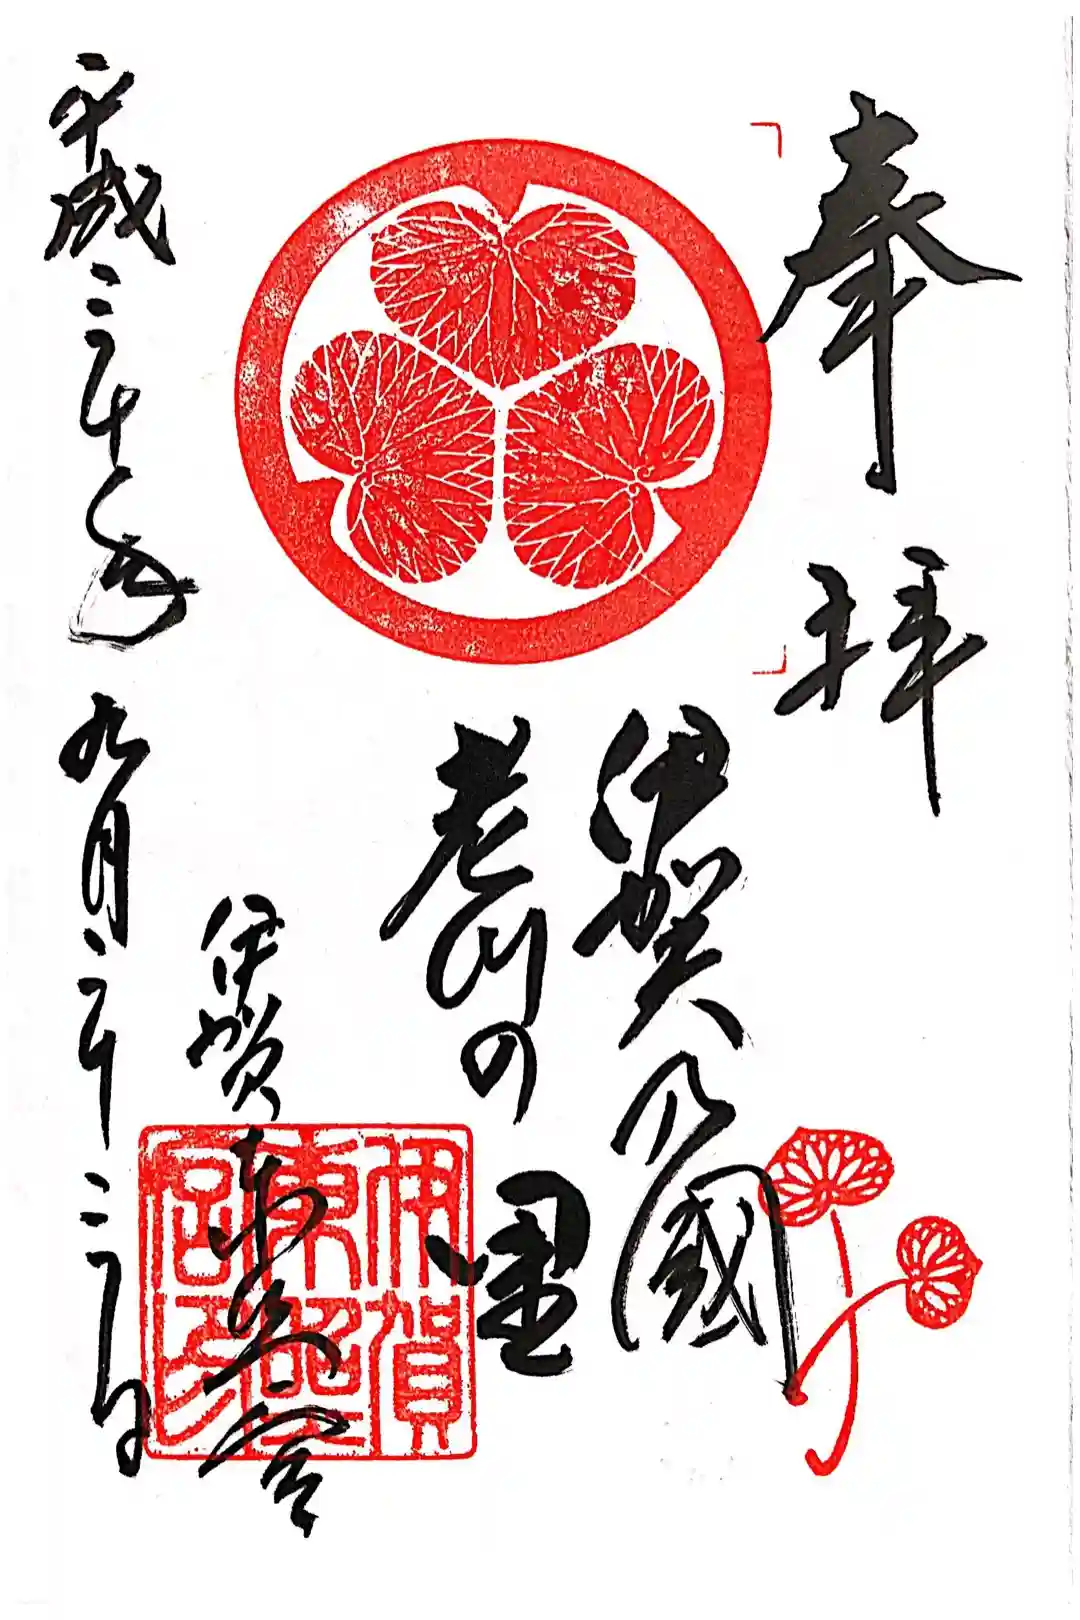 奉拝
伊賀乃國
老川の里
伊賀東照宮
平成三十年九月二十三日
伊賀
東照
宮印